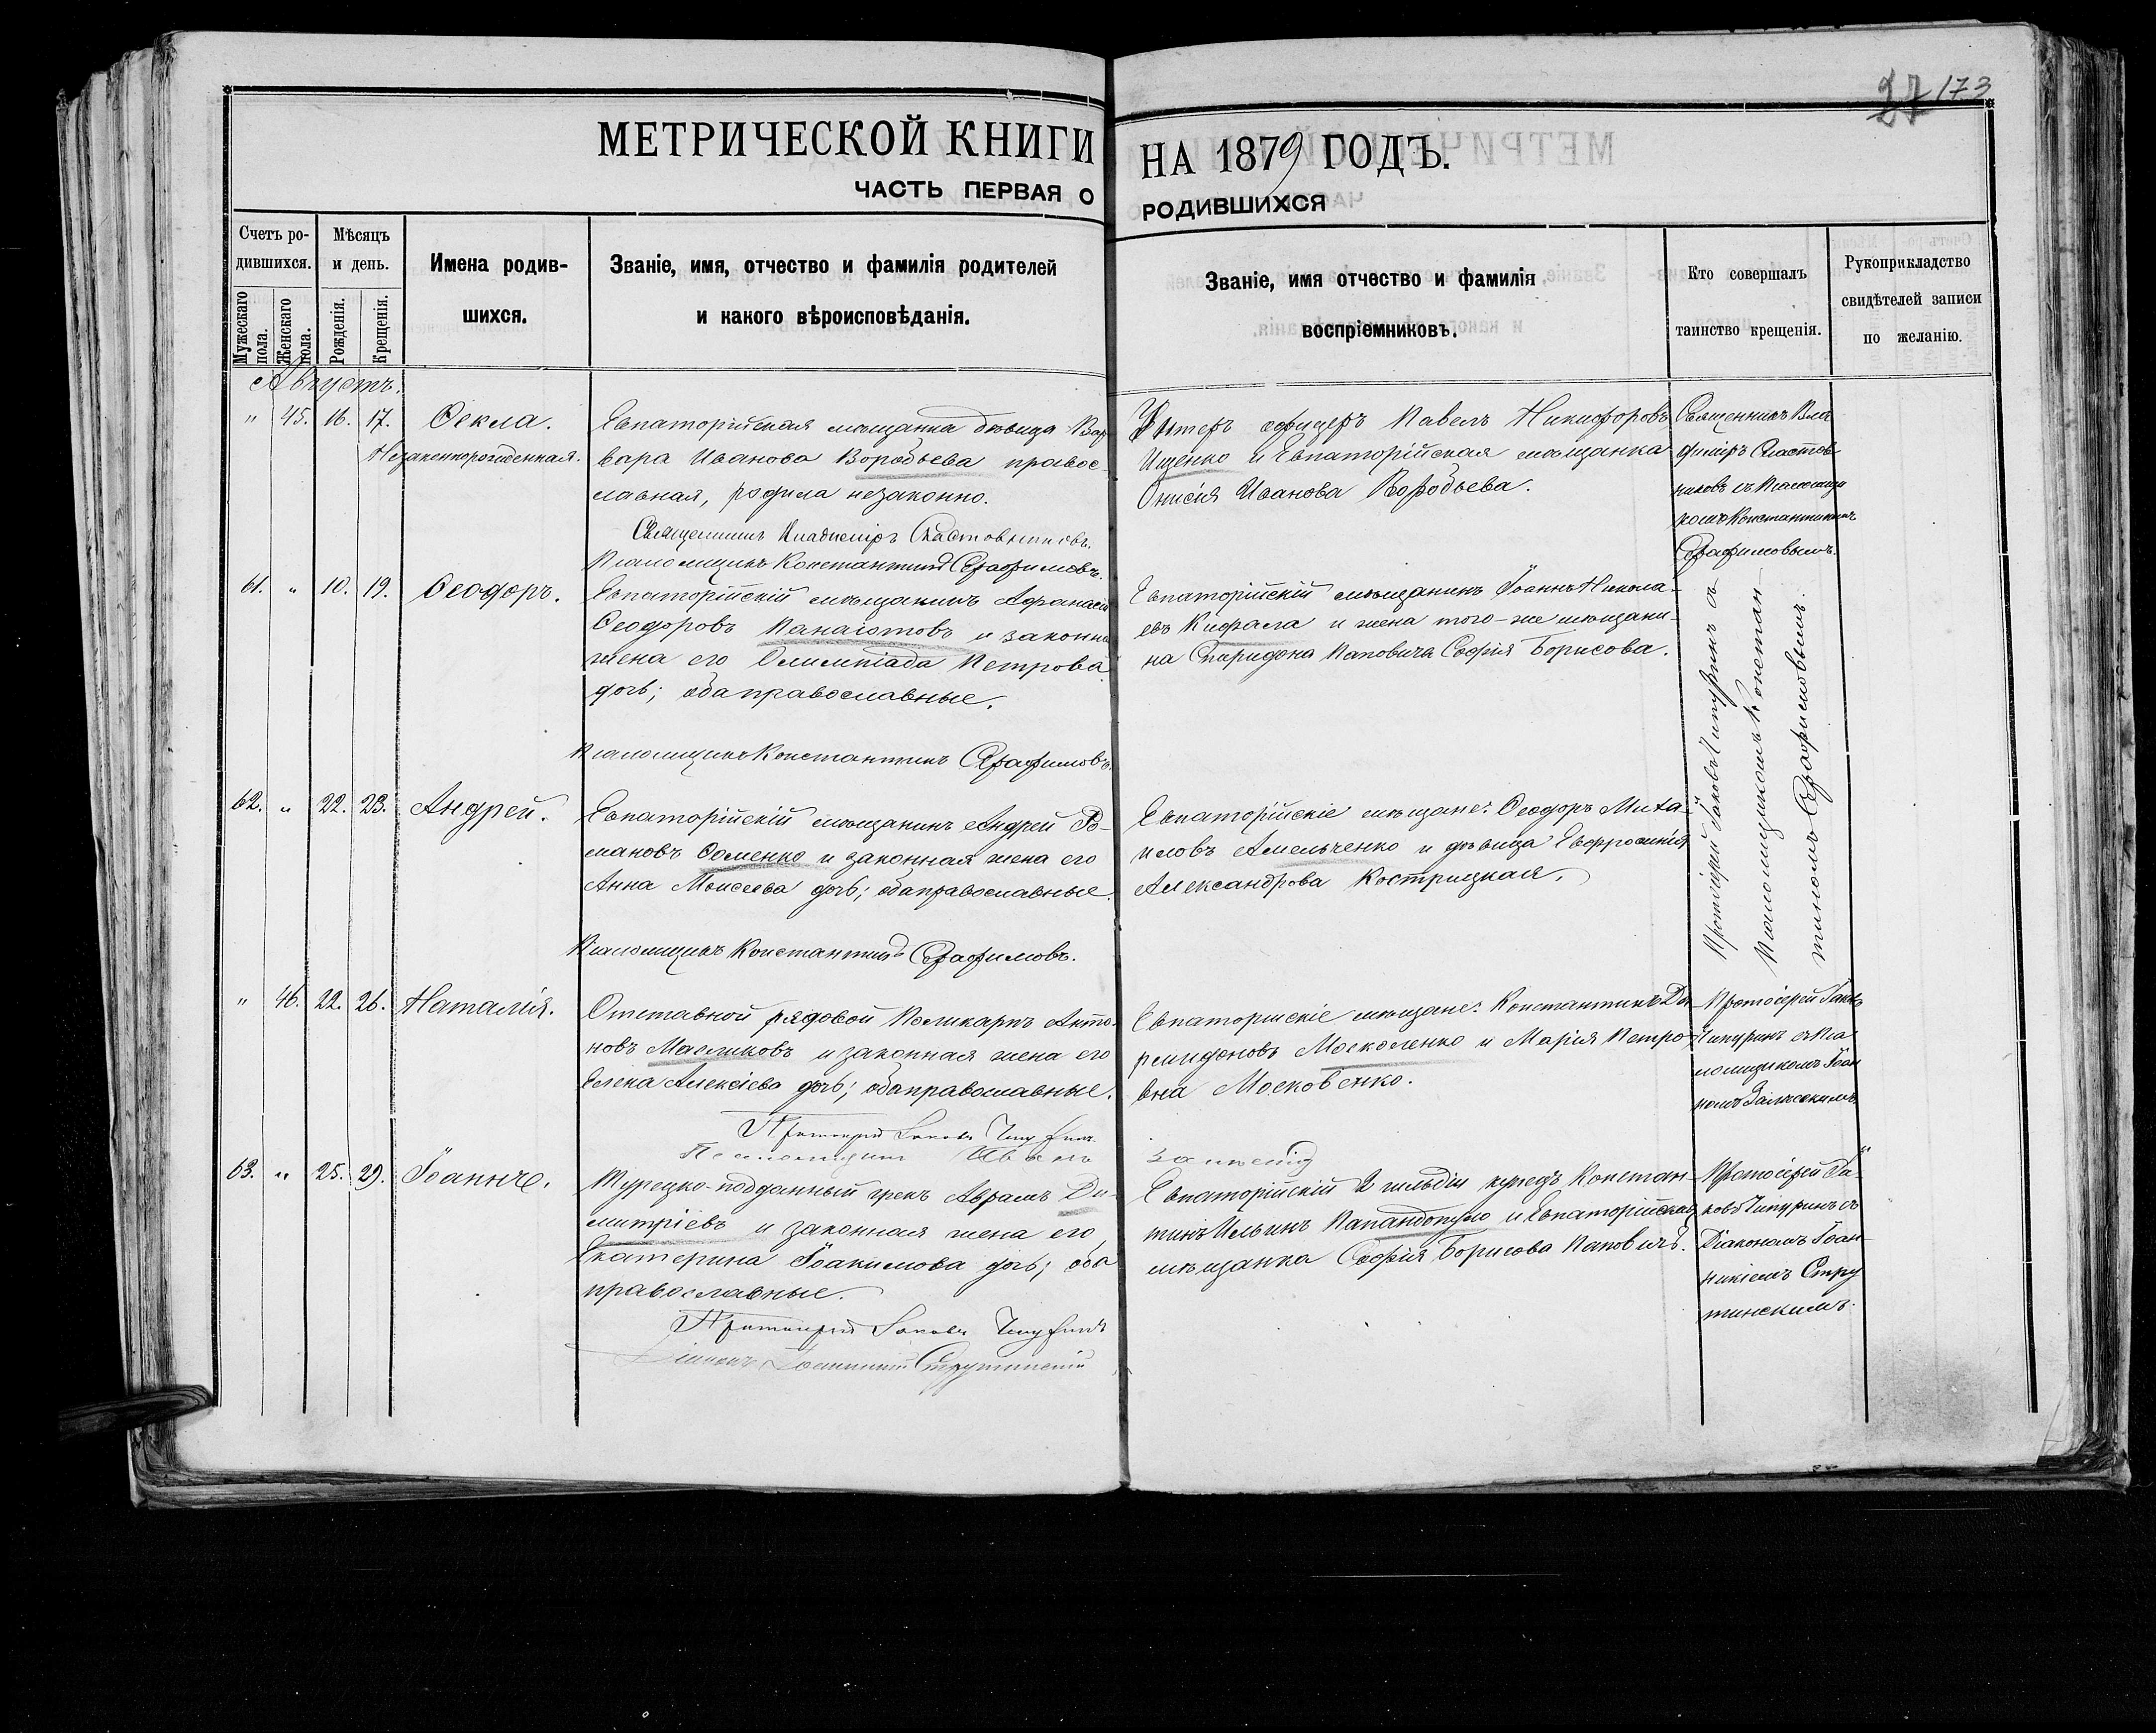 27 173
МЕТРИЧЕСКОЙ КНИГИ НА 1879 ГОДЪ.
ЧАСТЬ ПЕРВАЯ О РОДИВШИХСЯ
Счетъ ро-
дившихся.
Мужескаго пола.
Женскаго пола.
Мѣсяцъ
и день.
Рожденія.
Крещенія.
Имена родив-
шихся.
Званіе, имя, отчество и фамилія родителей
и какого вѣроисповѣданія.
Званіе, имя отчество и фамилія
воспріемниковъ.
Кто совершалъ
таинство крещенія.
Рукоприкладство
свидѣтелей записи
по желанію.
Августъ.
" 45. 16. 17. Ѳекла.
Незаконнорожденная.
Евпаторійская мѣщанка дѣвица Вар-
вара Иванова Воробьева правос-
лавная, родила незаконно.
Священникъ Владиміръ Сластовниковъ.
Псаломщикъ Константинъ Серафимовъ.
Унтеръ офицеръ Павелъ Никифоровъ
Ищенко и Евпаторійская мѣщанка
Онисія Иванова Воробьева.
Священникъ Вла
диміръ Сластов-
никовъ съ Псаломщи
комъ Константиномъ
Серафимовымъ.
61. " 10. 19. Ѳеодоръ.
Евпаторійскій мѣщанинъ Афанасій
Ѳеодоровъ Панаіотовъ и законная
жена его Олимпіада Петрова
дочь; оба православные.
Псаломщикъ Константинъ Серафимовъ.
Евпаторійскій мѣщанинъ Іоаннъ Никола-
евъ Кифала и жена того-же мѣщани-
на Спиридона Паповича Софія Борисова.
Протоіерей Іаковъ Чепуринъ съ
Псаломщикомъ Констан-
тиномъ Серафимовымъ.
62. " 22. 23. Андрей.
Евпаторійскій мѣщанинъ Андрей Ро-
мановъ Ѳоменко и законная жена его
Анна Моисеева дочь; оба православные.
Псаломщикъ Константинъ Серафимовъ.
Евпаторійскіе мѣщане: Ѳеодоръ Михай-
иловъ Амельченко и дѣвица Евфросинія
Александрова Кострицкая.
" 46. 22. 26. Наталія.
Отставной рядовой Поликарпъ Анто-
новъ Масликовъ и законная жена его
Елена Алексіева дочь; оба православные.
Протоіерей Іаковъ Чепуринъ
Псаломщикъ Иванъ
Евпаторійскіе мѣщане: Константинъ
Московенко и Марія Петро-
вна Московенко.
Протоіерей Іаковъ
Чепуринъ съ Пса
ломщикомъ Іоан
номъ Залѣсскимъ.
Залѣскій
63. " 25. 29. Іоаннъ.
Турецко-подданный грекъ Аврамъ Ди-
митріевъ и законная жена его
Екатерина Іоакимова дочь; оба
православные.
Протоіерей Іаковъ Чепуринъ
Діаконъ Іоанникій Струтинскій
Евпаторійскій 2 гильдіи купецъ Констан-
тинъ Ильинъ Папандопуло и Евпаторійская
мѣщанка Софія Борисова Паповичъ.
Протоіерей Іа-
ковъ Чепуринъ съ
Діакономъ Іоан-
никіемъ Стру
тинскимъ.